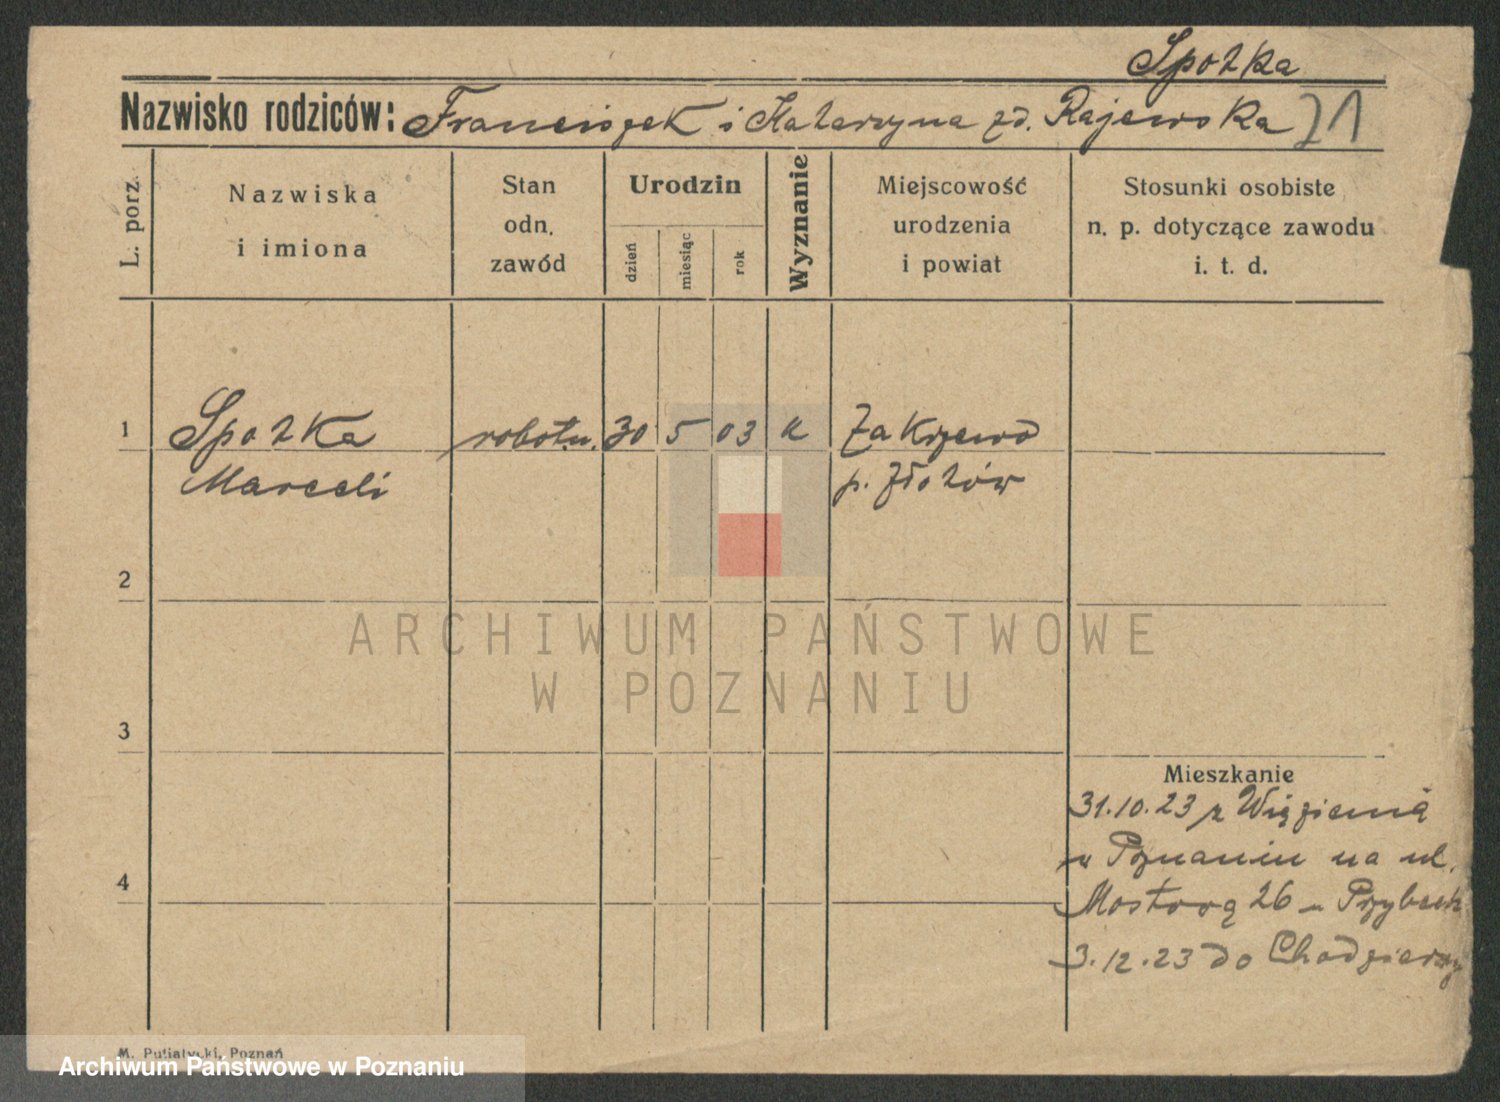 Spotka
Nazwisko rodziców: Franciszek i Katarzyna zd. Rajewska 21
L. porz.
Nazwiska
i imiona
Stan
odn.
zawód
Urodzin
dzień
miesiąc
rok
Wyznanie
Miejscowość
urodzenia
i powiat
Stosunki osobiste
n. p. dotyczące zawodu
i. t. d.
1 Spotka robotn. 30 5 03 k Zakrzewo
Marceli p. Złotów
2
ARCHIWUM PAŃSTWOWE
W POZNANIU
3
Mieszkanie
31.10.23 z Więzienia
w Poznaniu na ul.
4
Mostową 26 u
3.12.23 do Chodzieży
M. Putiatycki, Poznań
Archiwum Państwowe w Poznaniu